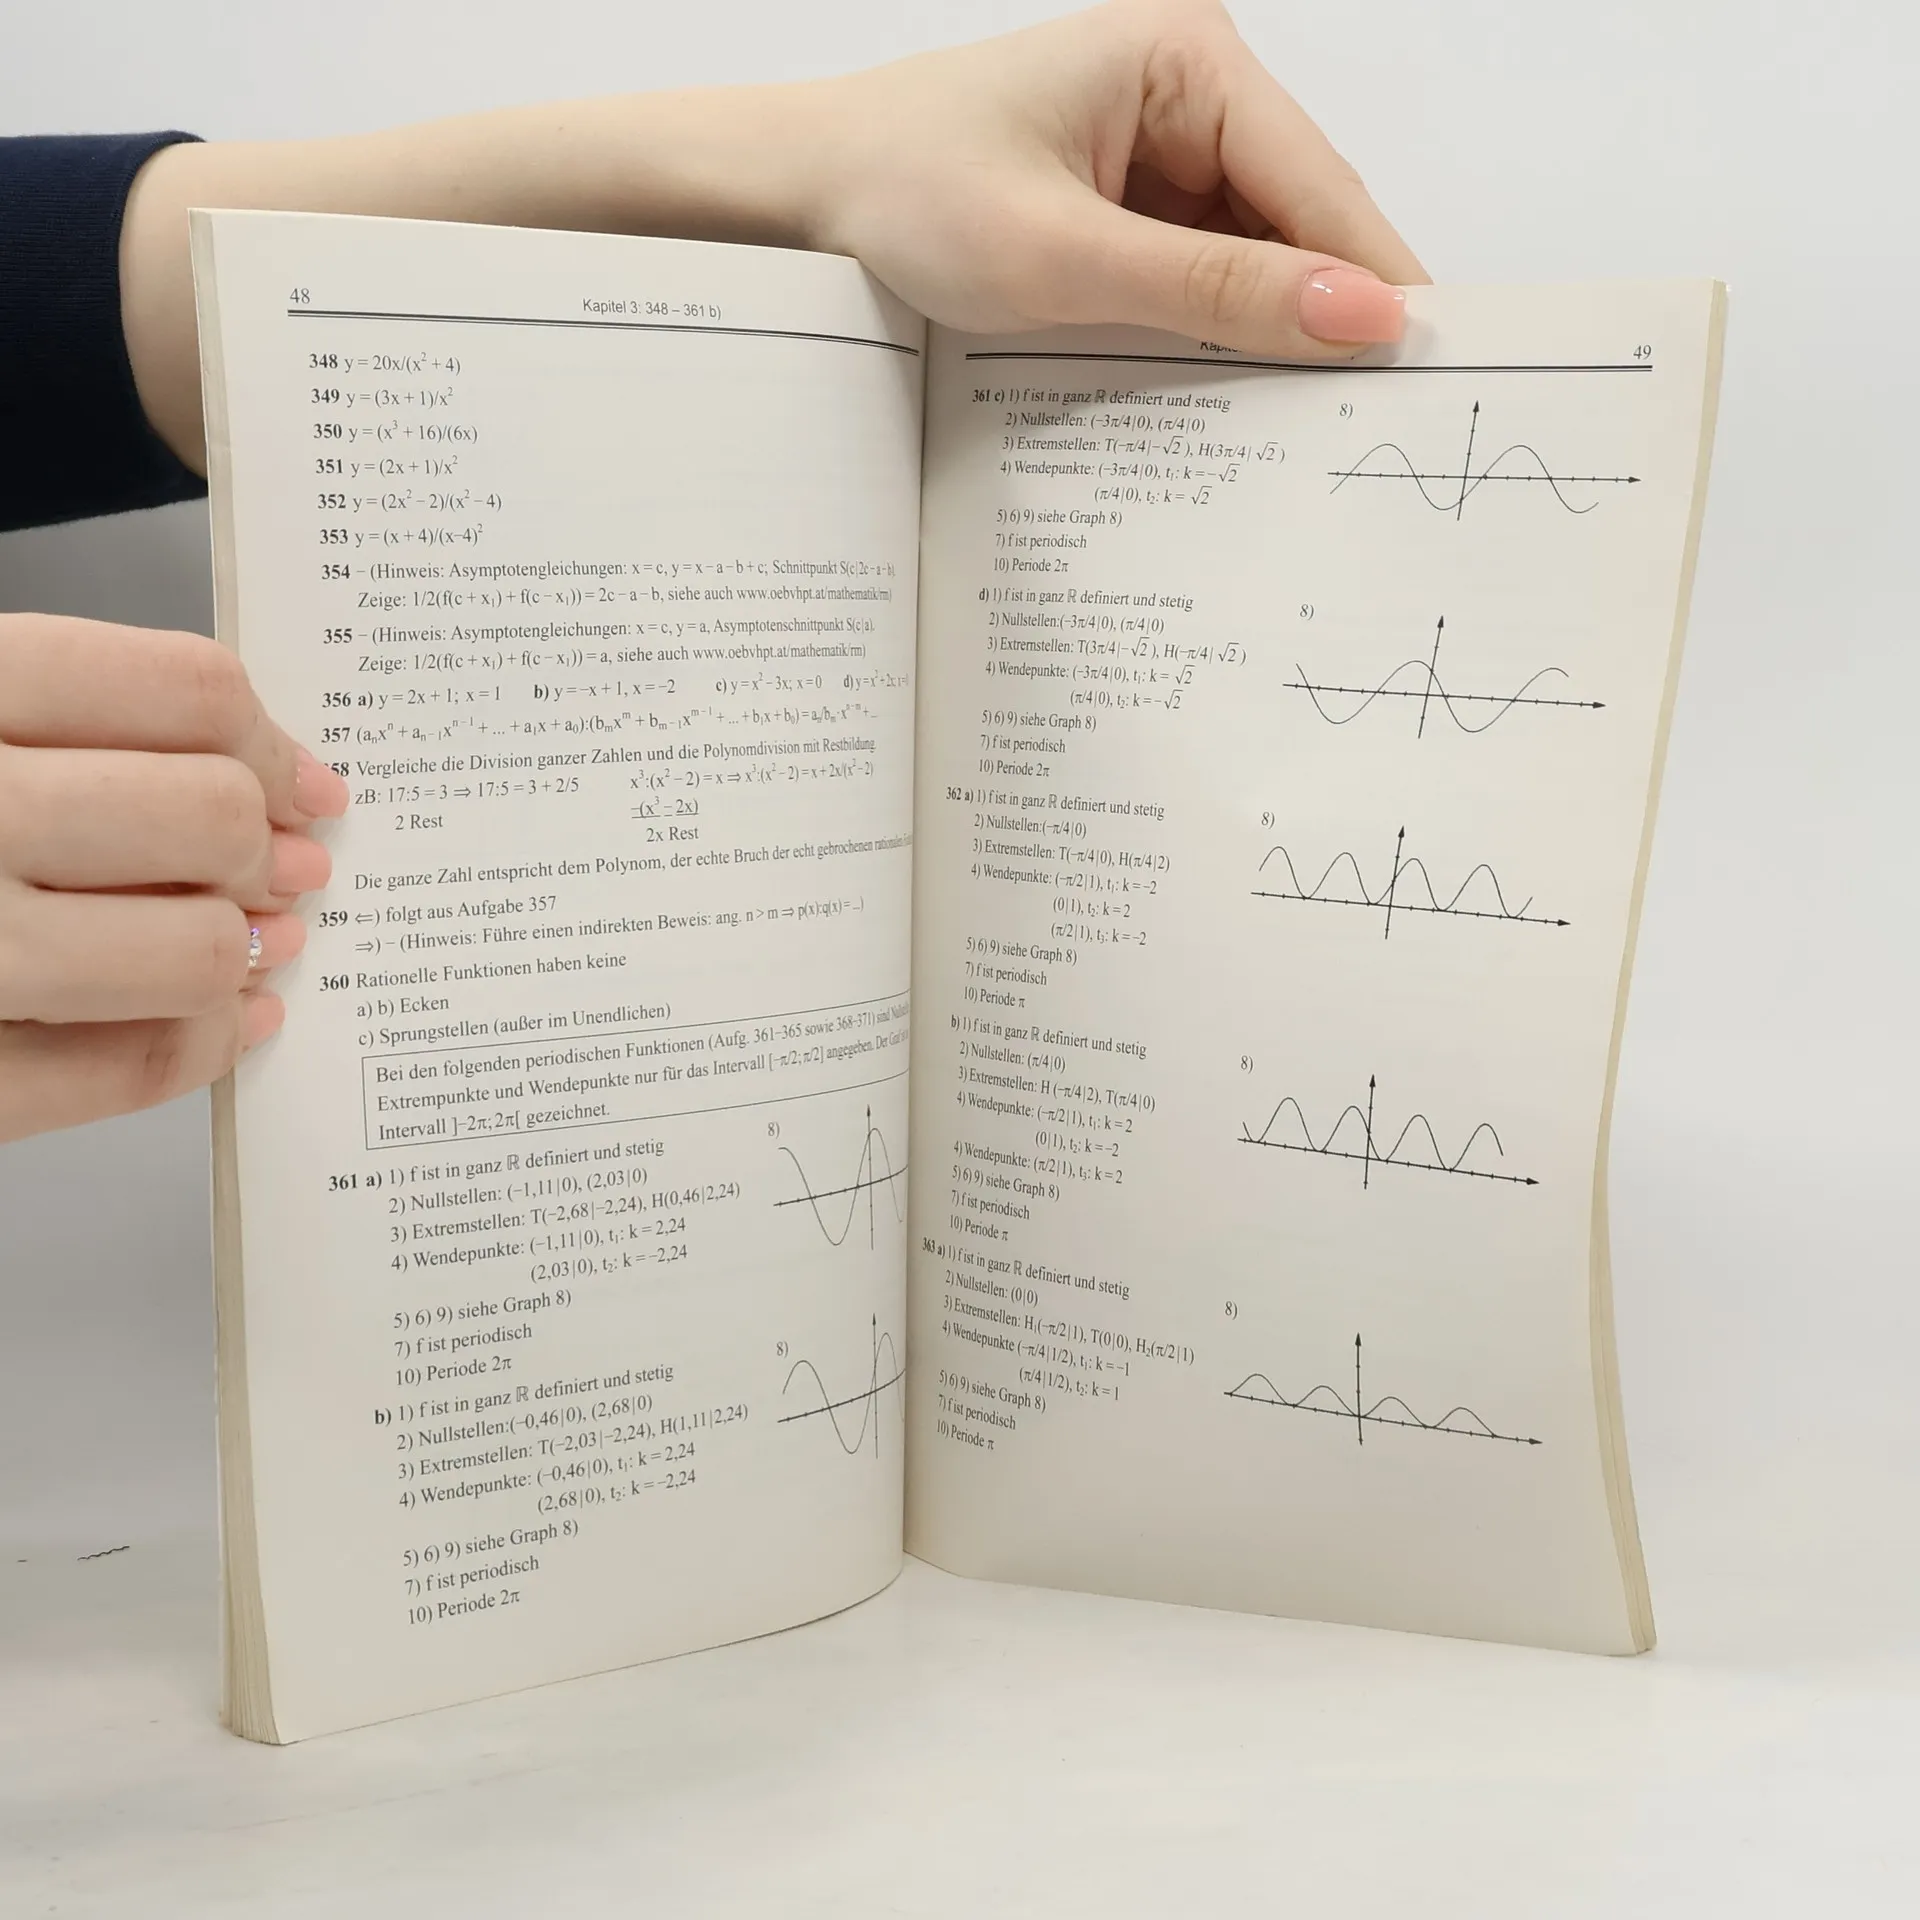 48
Kapitel 3: 348 – 361 b)
348 y = 20x/(x² + 4)
349 y = (3x + 1)/x²
350 y = (x³ + 16)/(6x)
351 y = (2x + 1)/x²
352 y = (2x² – 2)/(x² – 4)
353 y = (x + 4)/(x–4)²
354 – (Hinweis: Asymptotengleichungen: x = c, y = x – a – b + c; Schnittpunkt S(c|2c – a – b).
Zeige: 1/2(f(c + x₁) + f(c – x₁)) = 2c – a – b, siehe auch www.oebvhpt.at/mathematik/rm)
355 – (Hinweis: Asymptotengleichungen: x = c, y = a, Asymptotenschnittpunkt S(c|a).
Zeige: 1/2(f(c + x₁) + f(c – x₁)) = a, siehe auch www.oebvhpt.at/mathematik/rm)
356 a) y = 2x + 1; x = 1 b) y = –x + 1, x = –2 c) y = x² – 3x; x = 0 d) y = x² + 2x;
357 (aₙxⁿ + aₙ₋₁xⁿ⁻¹ + ... + a₁x + a₀):(bₘxᵐ + bₘ₋₁xᵐ⁻¹ + ... + b₁x + b₀) = aₙ/bₘ·xⁿ⁻ᵐ + ...
58 Vergleiche die Division ganzer Zahlen und die Polynomdivision mit Restbildung
zB: 17:5 = 3 ⇒ 17:5 = 3 + 2/5 x³:(x² – 2) = x ⇒ x³:(x² – 2) = x + 2x/(x² – 2)
2 Rest –(x³ – 2x)
2x Rest
Die ganze Zahl entspricht dem Polynom, der echte Bruch der echt gebrochenen rationalen
359 ⇐) folgt aus Aufgabe 357
⇒) – (Hinweis: Führe einen indirekten Beweis: ang. n > m ⇒ p(x):q(x) = ...)
360 Rationelle Funktionen haben keine
a) b) Ecken
c) Sprungstellen (außer im Unendlichen)
Bei den folgenden periodischen Funktionen (Aufg. 361–365 sowie 368–371) sind
Extrempunkte und Wendepunkte nur für das Intervall [–π/2; π/2] angegeben. Der Graf
Intervall ]–2π; 2π[ gezeichnet.
361 a) 1) f ist in ganz ℝ definiert und stetig 8)
2) Nullstellen: (–1,11|0), (2,03|0)
3) Extremstellen: T(–2,68|–2,24), H(0,46|2,24)
4) Wendepunkte: (–1,11|0), t₁: k = 2,24
(2,03|0), t₂: k = –2,24
5) 6) 9) siehe Graph 8)
7) f ist periodisch
10) Periode 2π
b) 1) f ist in ganz ℝ definiert und stetig 8)
2) Nullstellen:(–0,46|0), (2,68|0)
3) Extremstellen: T(–2,03|–2,24), H(1,11|2,24)
4) Wendepunkte: (–0,46|0), t₁: k = 2,24
(2,68|0), t₂: k = –2,24
5) 6) 9) siehe Graph 8)
7) f ist periodisch
10) Periode 2π
49
361 c) 1) f ist in ganz ℝ definiert und stetig 8)
2) Nullstellen: (–3π/4|0), (π/4|0)
3) Extremstellen: T(–π/4|–√2), H(3π/4|√2)
4) Wendepunkte: (–3π/4|0), t₁: k = –√2
(π/4|0), t₂: k = √2
5) 6) 9) siehe Graph 8)
7) f ist periodisch
10) Periode 2π
d) 1) f ist in ganz ℝ definiert und stetig 8)
2) Nullstellen:(–3π/4|0), (π/4|0)
3) Extremstellen: T(3π/4|–√2), H(–π/4|√2)
4) Wendepunkte: (–3π/4|0), t₁: k = √2
(π/4|0), t₂: k = –√2
5) 6) 9) siehe Graph 8)
7) f ist periodisch
10) Periode 2π
362 a) 1) f ist in ganz ℝ definiert und stetig 8)
2) Nullstellen:(–π/4|0)
3) Extremstellen: T(–π/4|0), H(π/4|2)
4) Wendepunkte: (–π/2|1), t₁: k = –2
(0|1), t₂: k = 2
(π/2|1), t₃: k = –2
5) 6) 9) siehe Graph 8)
7) f ist periodisch
10) Periode π
b) 1) f ist in ganz ℝ definiert und stetig 8)
2) Nullstellen: (π/4|0)
3) Extremstellen: H (–π/4|2), T(π/4|0)
4) Wendepunkte: (–π/2|1), t₁: k = 2
(0|1), t₂: k = –2
4) Wendepunkte: (π/2|1), t₃: k = 2
5) 6) 9) siehe Graph 8)
7) f ist periodisch
10) Periode π
363 a) 1) f ist in ganz ℝ definiert und stetig 8)
2) Nullstellen: (0|0)
3) Extremstellen: H₁(–π/2|1), T(0|0), H₂(π/2|1)
4) Wendepunkte (–π/4|1/2), t₁: k = –1
(π/4|1/2), t₂: k = 1
5) 6) 9) siehe Graph 8)
7) f ist periodisch
10) Periode π